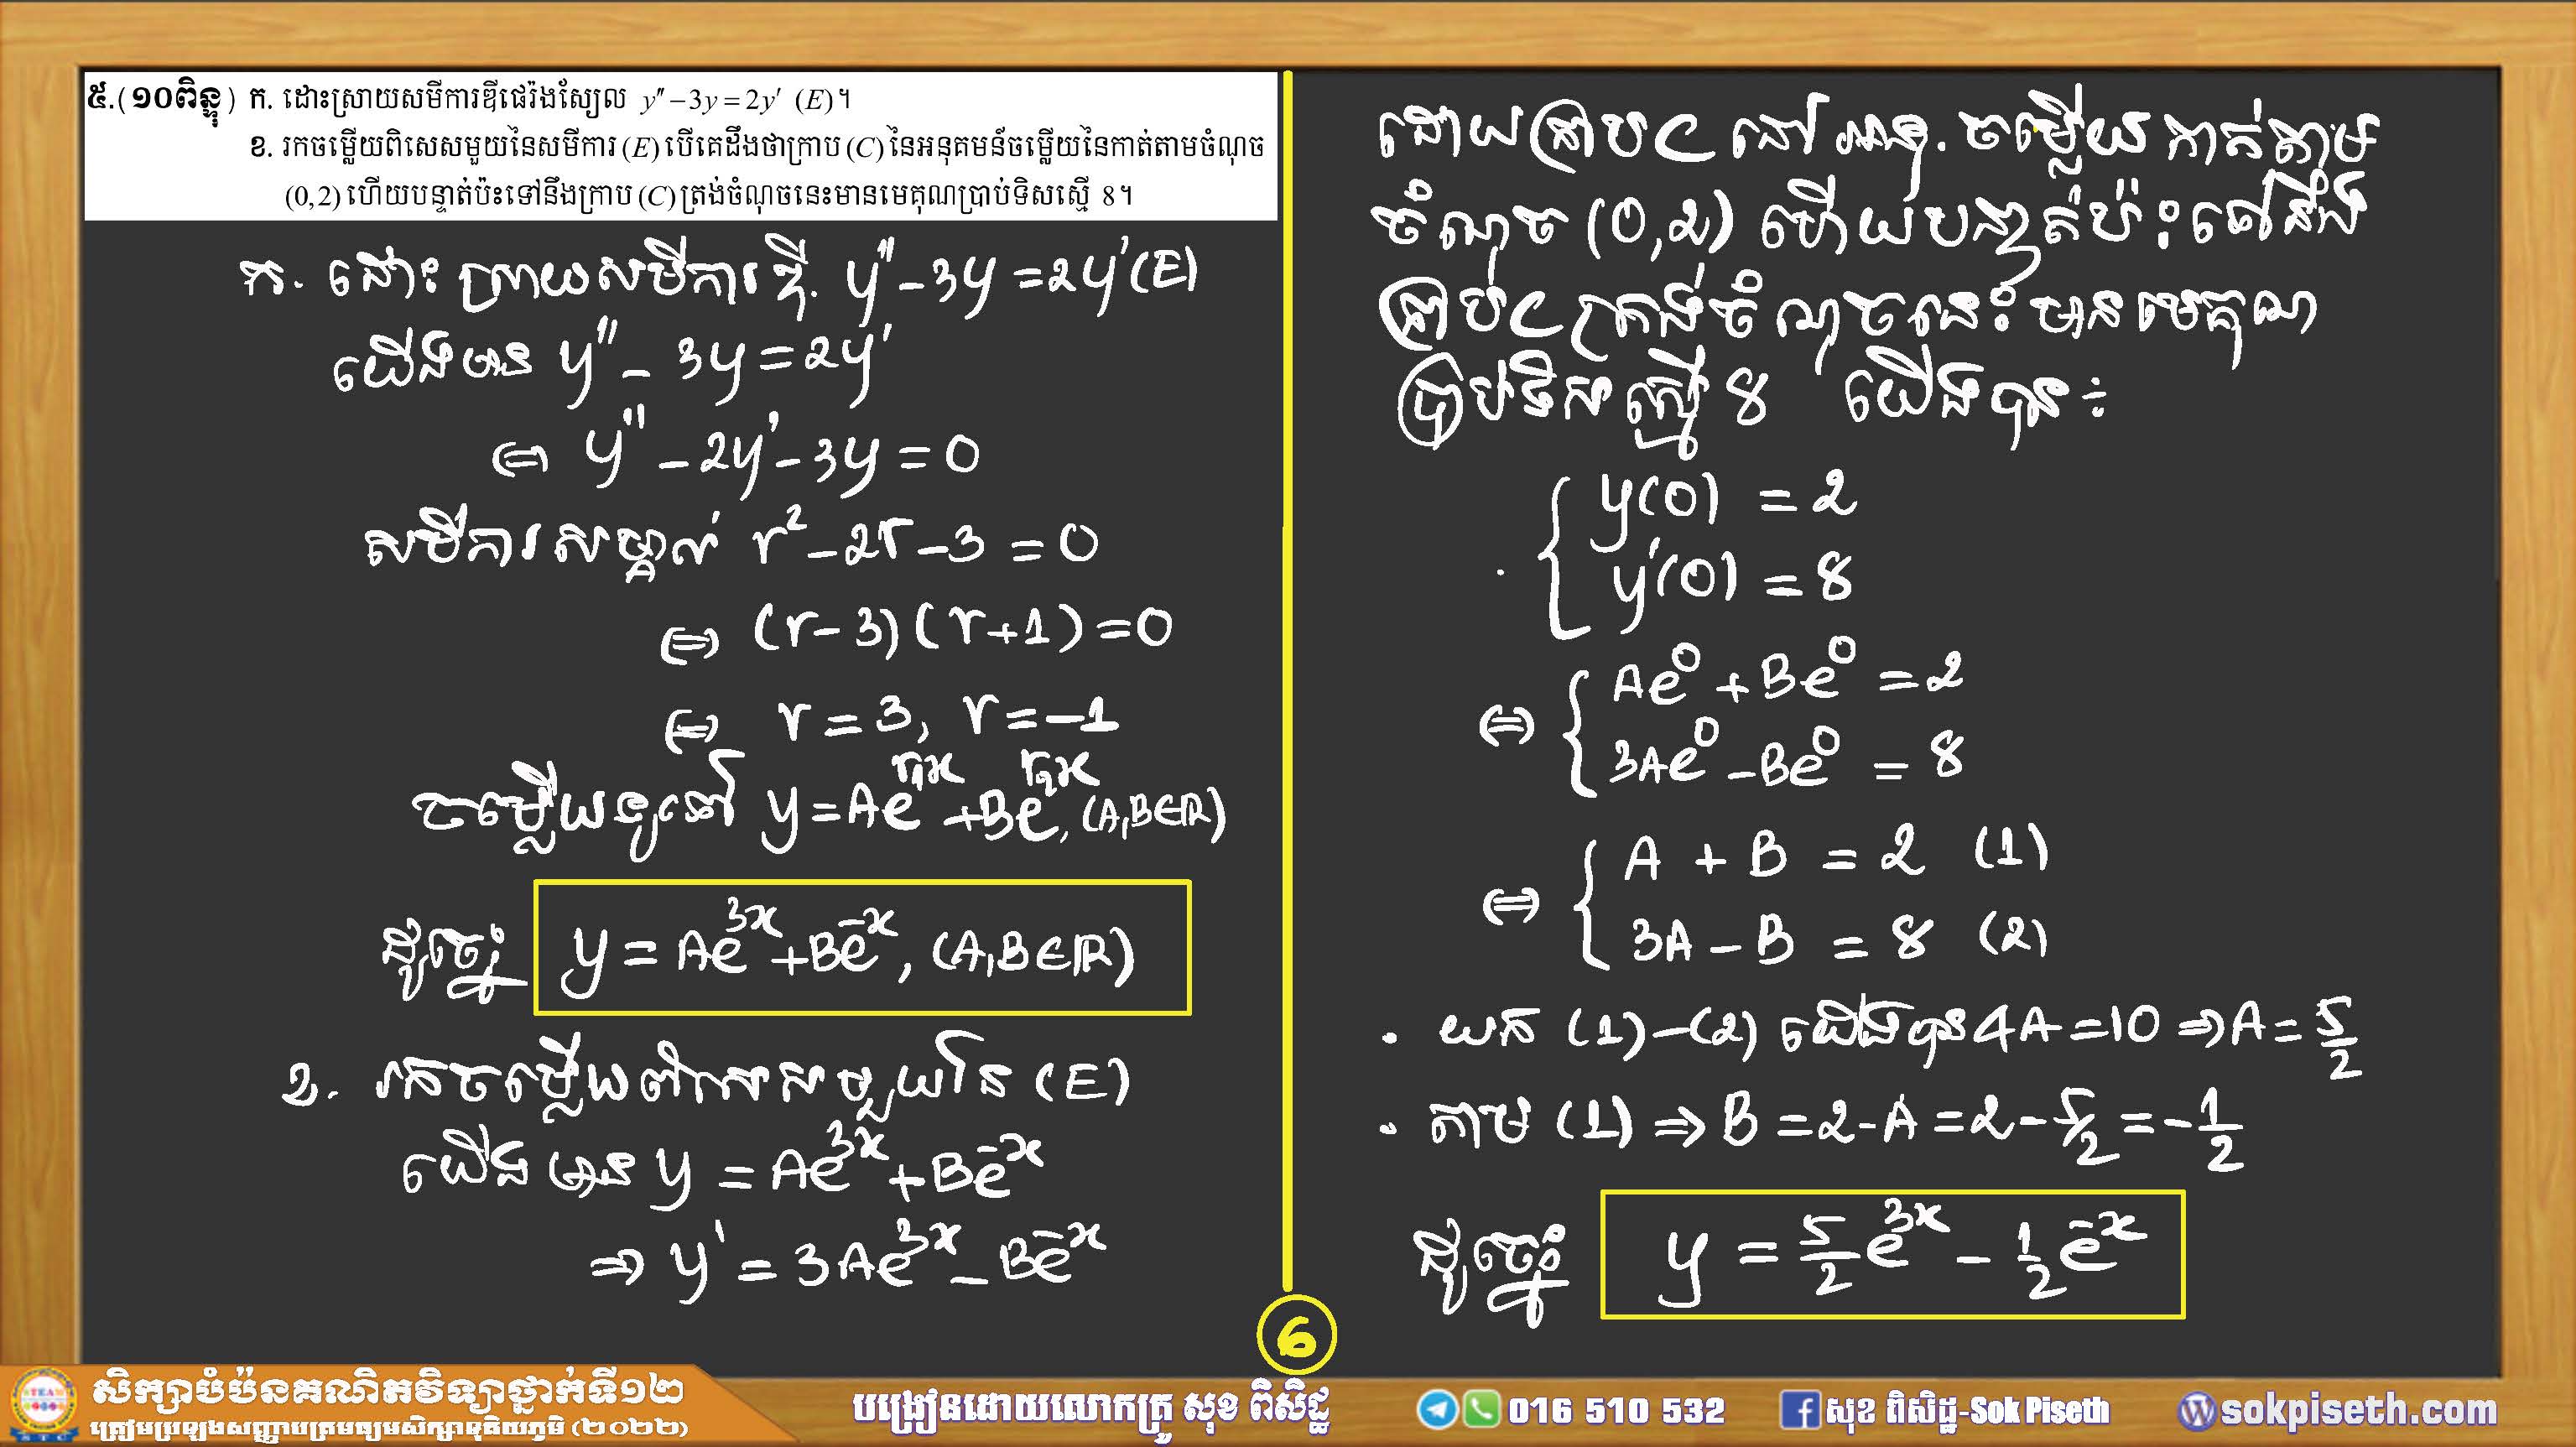 ៥.(១០ពិន្ទុ) ក. ដោះស្រាយសមីការឌីផេរ៉ង់ស្យែល y″ − 3y = 2y′ (E)។
ខ. រកចម្លើយពិសេសមួយនៃសមីការ (E) បើគេដឹងថាក្រាប (C) នៃអនុគមន៍ចម្លើយនៃកាត់តាមចំណុច
(0, 2) ហើយបន្ទាត់ប៉ះទៅនឹងក្រាប (C) ត្រង់ចំណុចនេះមានមេគុណប្រាប់ទិសស្មើ 8។
ក. ដោះស្រាយសមីការឌី. y″ − 3y = 2y′ (E)
យើងមាន y″ − 3y = 2y′
⇔ y″ − 2y′ − 3y = 0
សមីការសម្គាល់ r² − 2r − 3 = 0
⇔ (r − 3)(r + 1) = 0
⇔ r = 3, r = −1
ចម្លើយទូទៅ y = Ae^{r₁x} + Be^{r₂x}, (A,B∈ℝ)
ដូច្នេះ y = Ae^{3x} + Be^{−x}, (A,B∈ℝ)
ខ. រកចម្លើយពិសេសមួយនៃ (E)
យើងមាន y = Ae^{3x} + Be^{−x}
⇒ y′ = 3Ae^{3x} − Be^{−x}
ដោយក្រាប C នៅ អនុ. ចម្លើយ កាត់តាម
ចំណុច (0, 2) ហើយបន្ទាត់ប៉ះទៅនឹង
ក្រាប C ត្រង់ចំណុចនេះមានមេគុណ
ប្រាប់ទិសស្មើ 8 យើងបាន ÷
{ y(0) = 2
y′(0) = 8
⇔ { Ae⁰ + Be⁰ = 2
3Ae⁰ − Be⁰ = 8
⇔ { A + B = 2 (1)
3A − B = 8 (2)
. យក (1) − (2) យើងបាន 4A = 10 ⇒ A = 5/2
. តាម (1) ⇒ B = 2 - A = 2 − 5/2 = −1/2
ដូច្នេះ y = 5/2 e^{3x} − 1/2 e^{−x}
6
សិក្សាបំប៉នគណិតវិទ្យាថ្នាក់ទី១២
ត្រៀមប្រឡងសញ្ញាបត្រមធ្យមសិក្សាទុតិយភូមិ (២០២២)
បង្រៀនដោយលោកគ្រូ សុខ ពិសិដ្ឋ
016 510 532
សុខ ពិសិដ្ឋ-Sok Piseth
sokpiseth.com